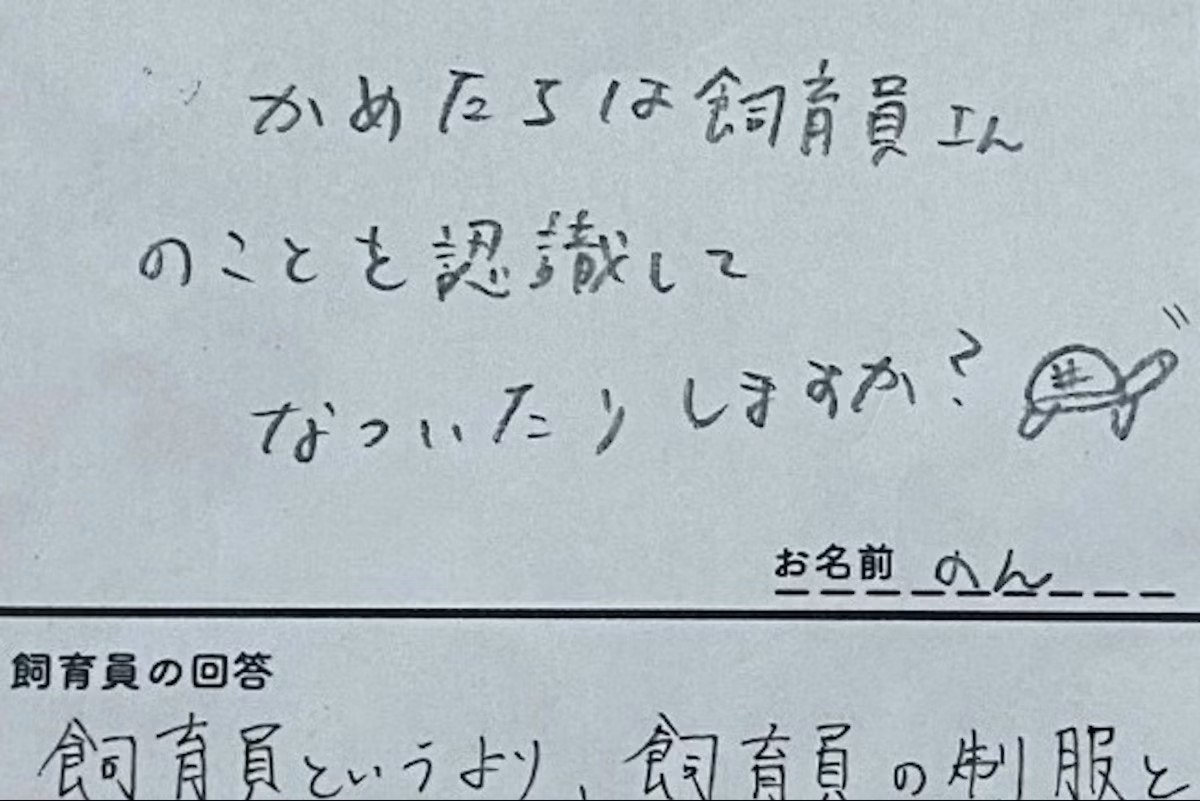 かめたちは飼育員さん
のことを認識して
なついたりしますか?
お名前 のん
飼育員の回答
飼育員というより、飼育員の制服と